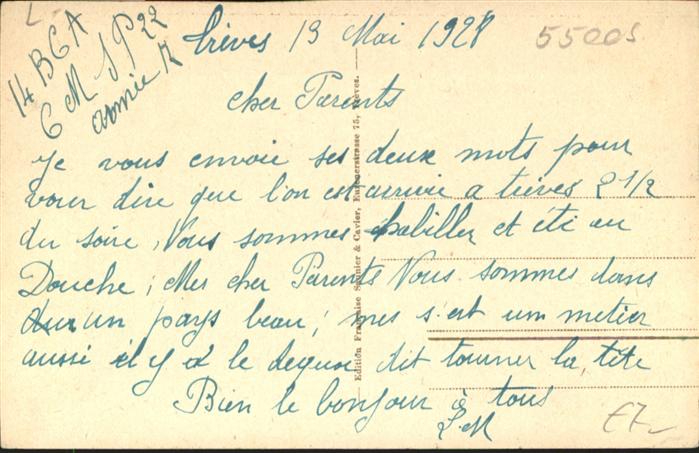 14 BCA
6 M SP 22
armée R
Trèves 13 Mai 1928
55005
cher Parents
Je vous envoie ses deux mots pour
vour dire que l'on est arrivie a trèves 2 1/2
du soire, Nous sommes habiller et éti au
Douche; Mes cher Parents Nous sommes dans
un pays beau; mes s'est um metier
aussi il y a le dequoi dit tourner la tête
Bien le bonjour à tous
L.M
£7-
Edition Française Sannier & Cavier, 75, Trèves.